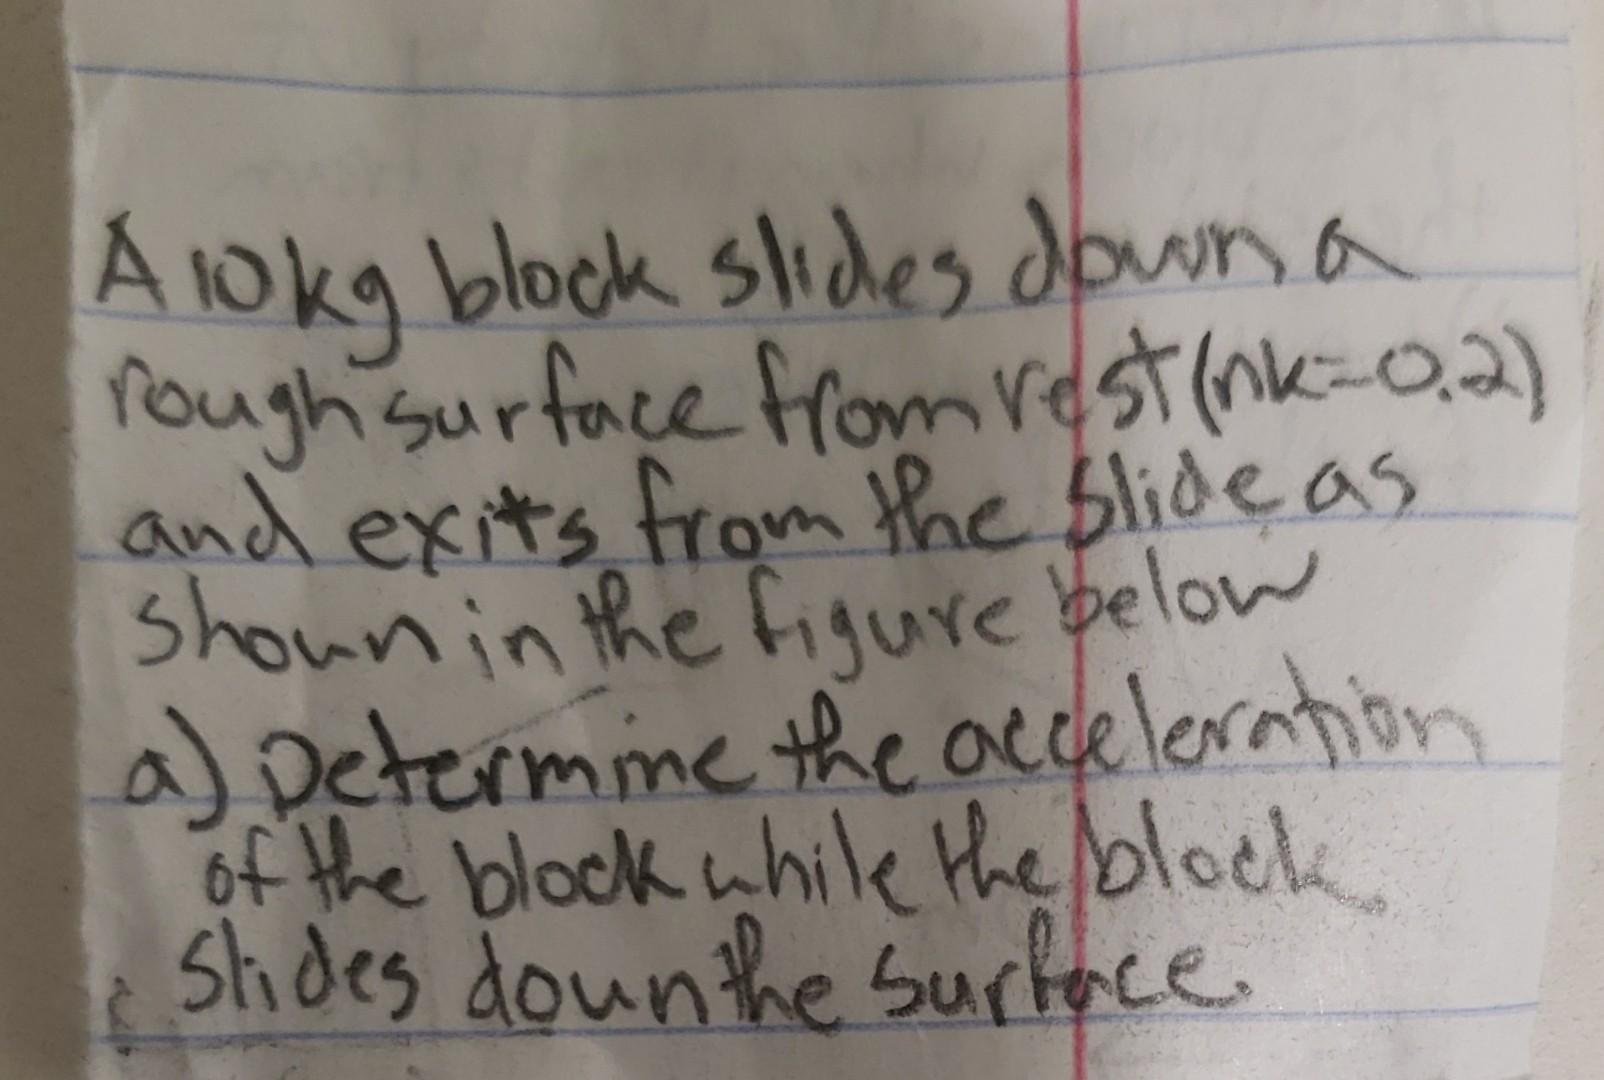 A 10kg block slides down a
rough surface from rest (nk=0.2)
and exits from the slide as
shown in the figure below
a) Determine the acceleration
of the block while the block
slides down the surface.